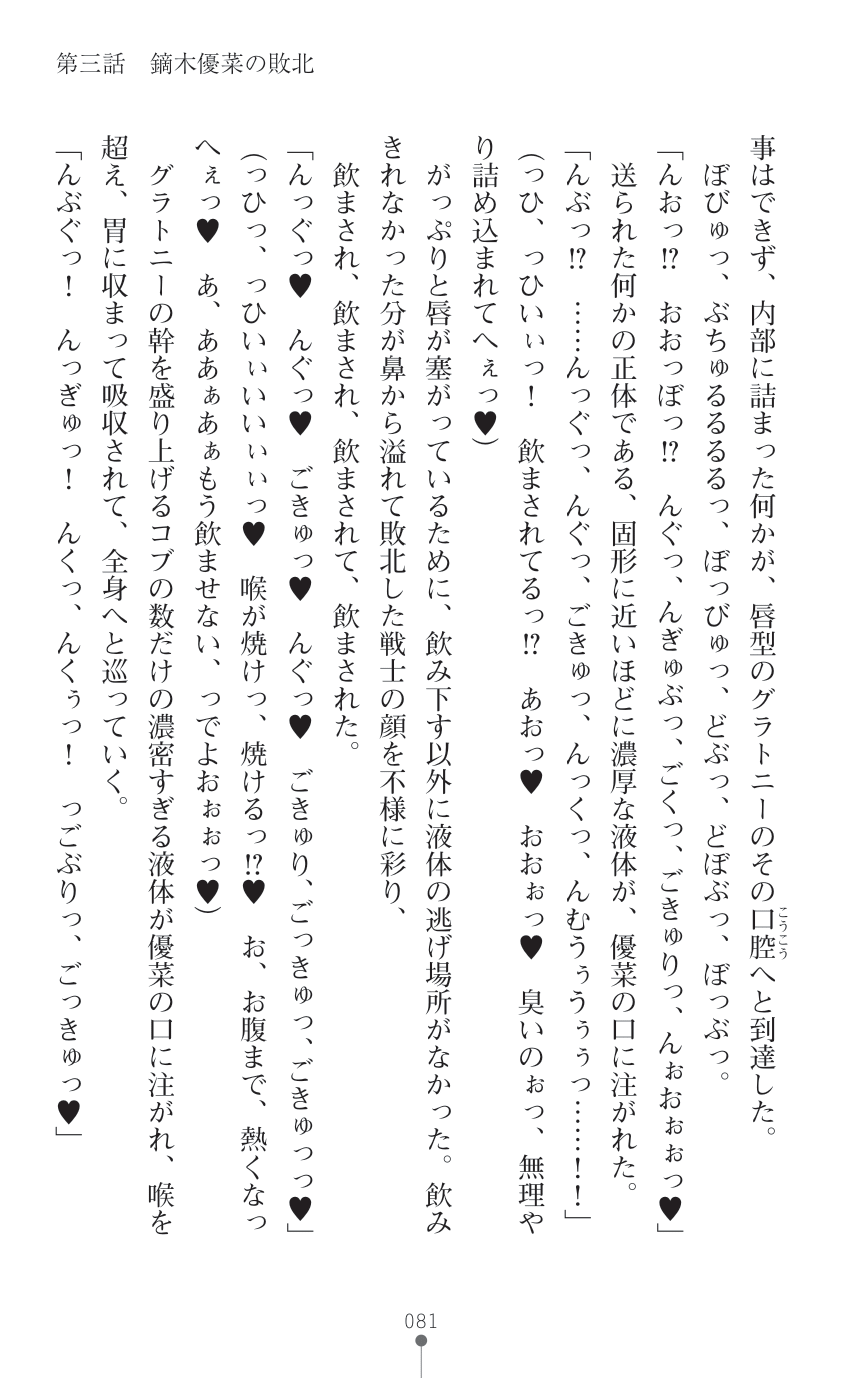 第三話　鏑木優菜の敗北
事はできず、内部に詰まった何かが、唇型のグラトニーのその口腔へと到達した。
こうこう
　ぼびゅっ、ぶちゅるるるるっ、ぼっびゅっ、どぶっ、どぼぶっ、ぼっぶっ。
「んおっ!?　おおっぼっ!?　んぐっ、んぎゅぶっ、ごくっ、ごきゅりっ、んぉおぉぉっ♥」
　送られた何かの正体である、固形に近いほどに濃厚な液体が、優菜の口に注がれた。
「んぶっ!?　……んっぐっ、んぐっ、ごきゅっ、んっくっ、んむうぅうぅぅっ……！！」
（っひ、っひいぃっ！　飲まされてるっ!?　あおっ♥　おおぉっ♥　臭いのぉっ、無理や
り詰め込まれてへぇっ♥）
　がっぷりと唇が塞がっているために、飲み下す以外に液体の逃げ場所がなかった。飲み
きれなかった分が鼻から溢れて敗北した戦士の顔を不様に彩り、
　飲まされ、飲まされ、飲まされて、飲まされた。
「んっぐっ♥　んぐっ♥　ごきゅっ♥　んぐっ♥　ごきゅり、ごっきゅっ、ごきゅっっ♥」
（っひっ、っひいぃいぃいぃっ♥　喉が焼けっ、焼けるっ!?♥　お、お腹まで、熱くなっ
へぇっ♥　あ、ああぁあぁもう飲ませない、っでよおぉぉっ♥）
　グラトニーの幹を盛り上げるコブの数だけの濃密すぎる液体が優菜の口に注がれ、喉を
超え、胃に収まって吸収されて、全身へと巡っていく。
「んぶぐっ！　んっぎゅっ！　んくっ、んくぅっ！　っごぶりっ、ごっきゅっ♥」
081